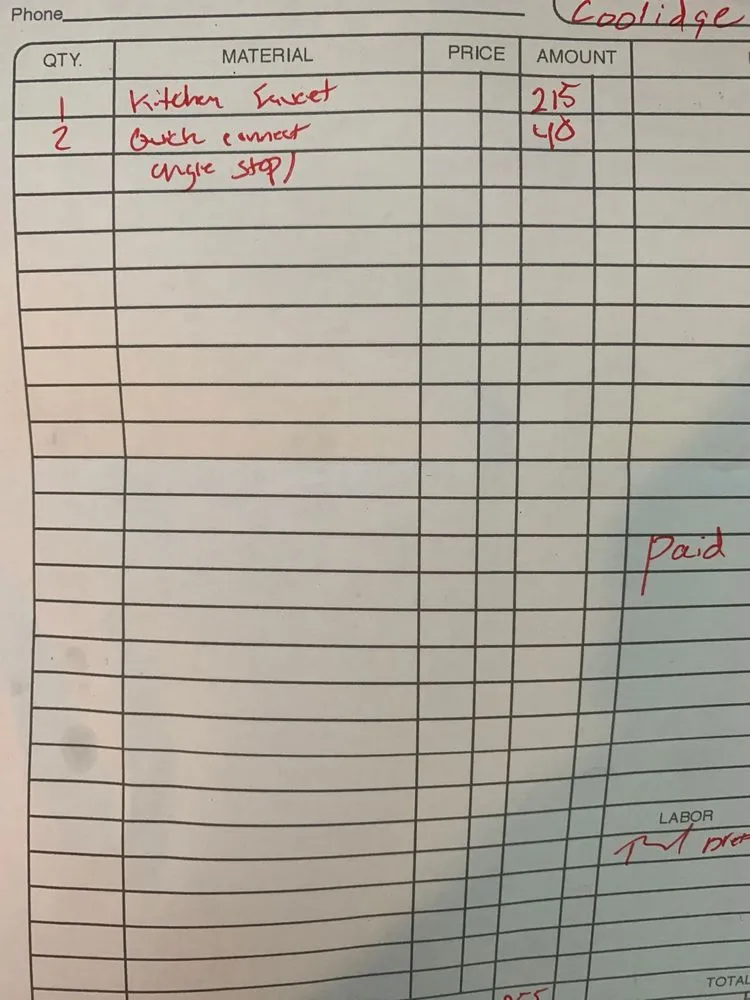 Phone
Coolidge
QTY. MATERIAL PRICE AMOUNT
1 Kitchen Faucet 215
2 Quick connect 40
angle stop
Paid
LABOR
TOTAL